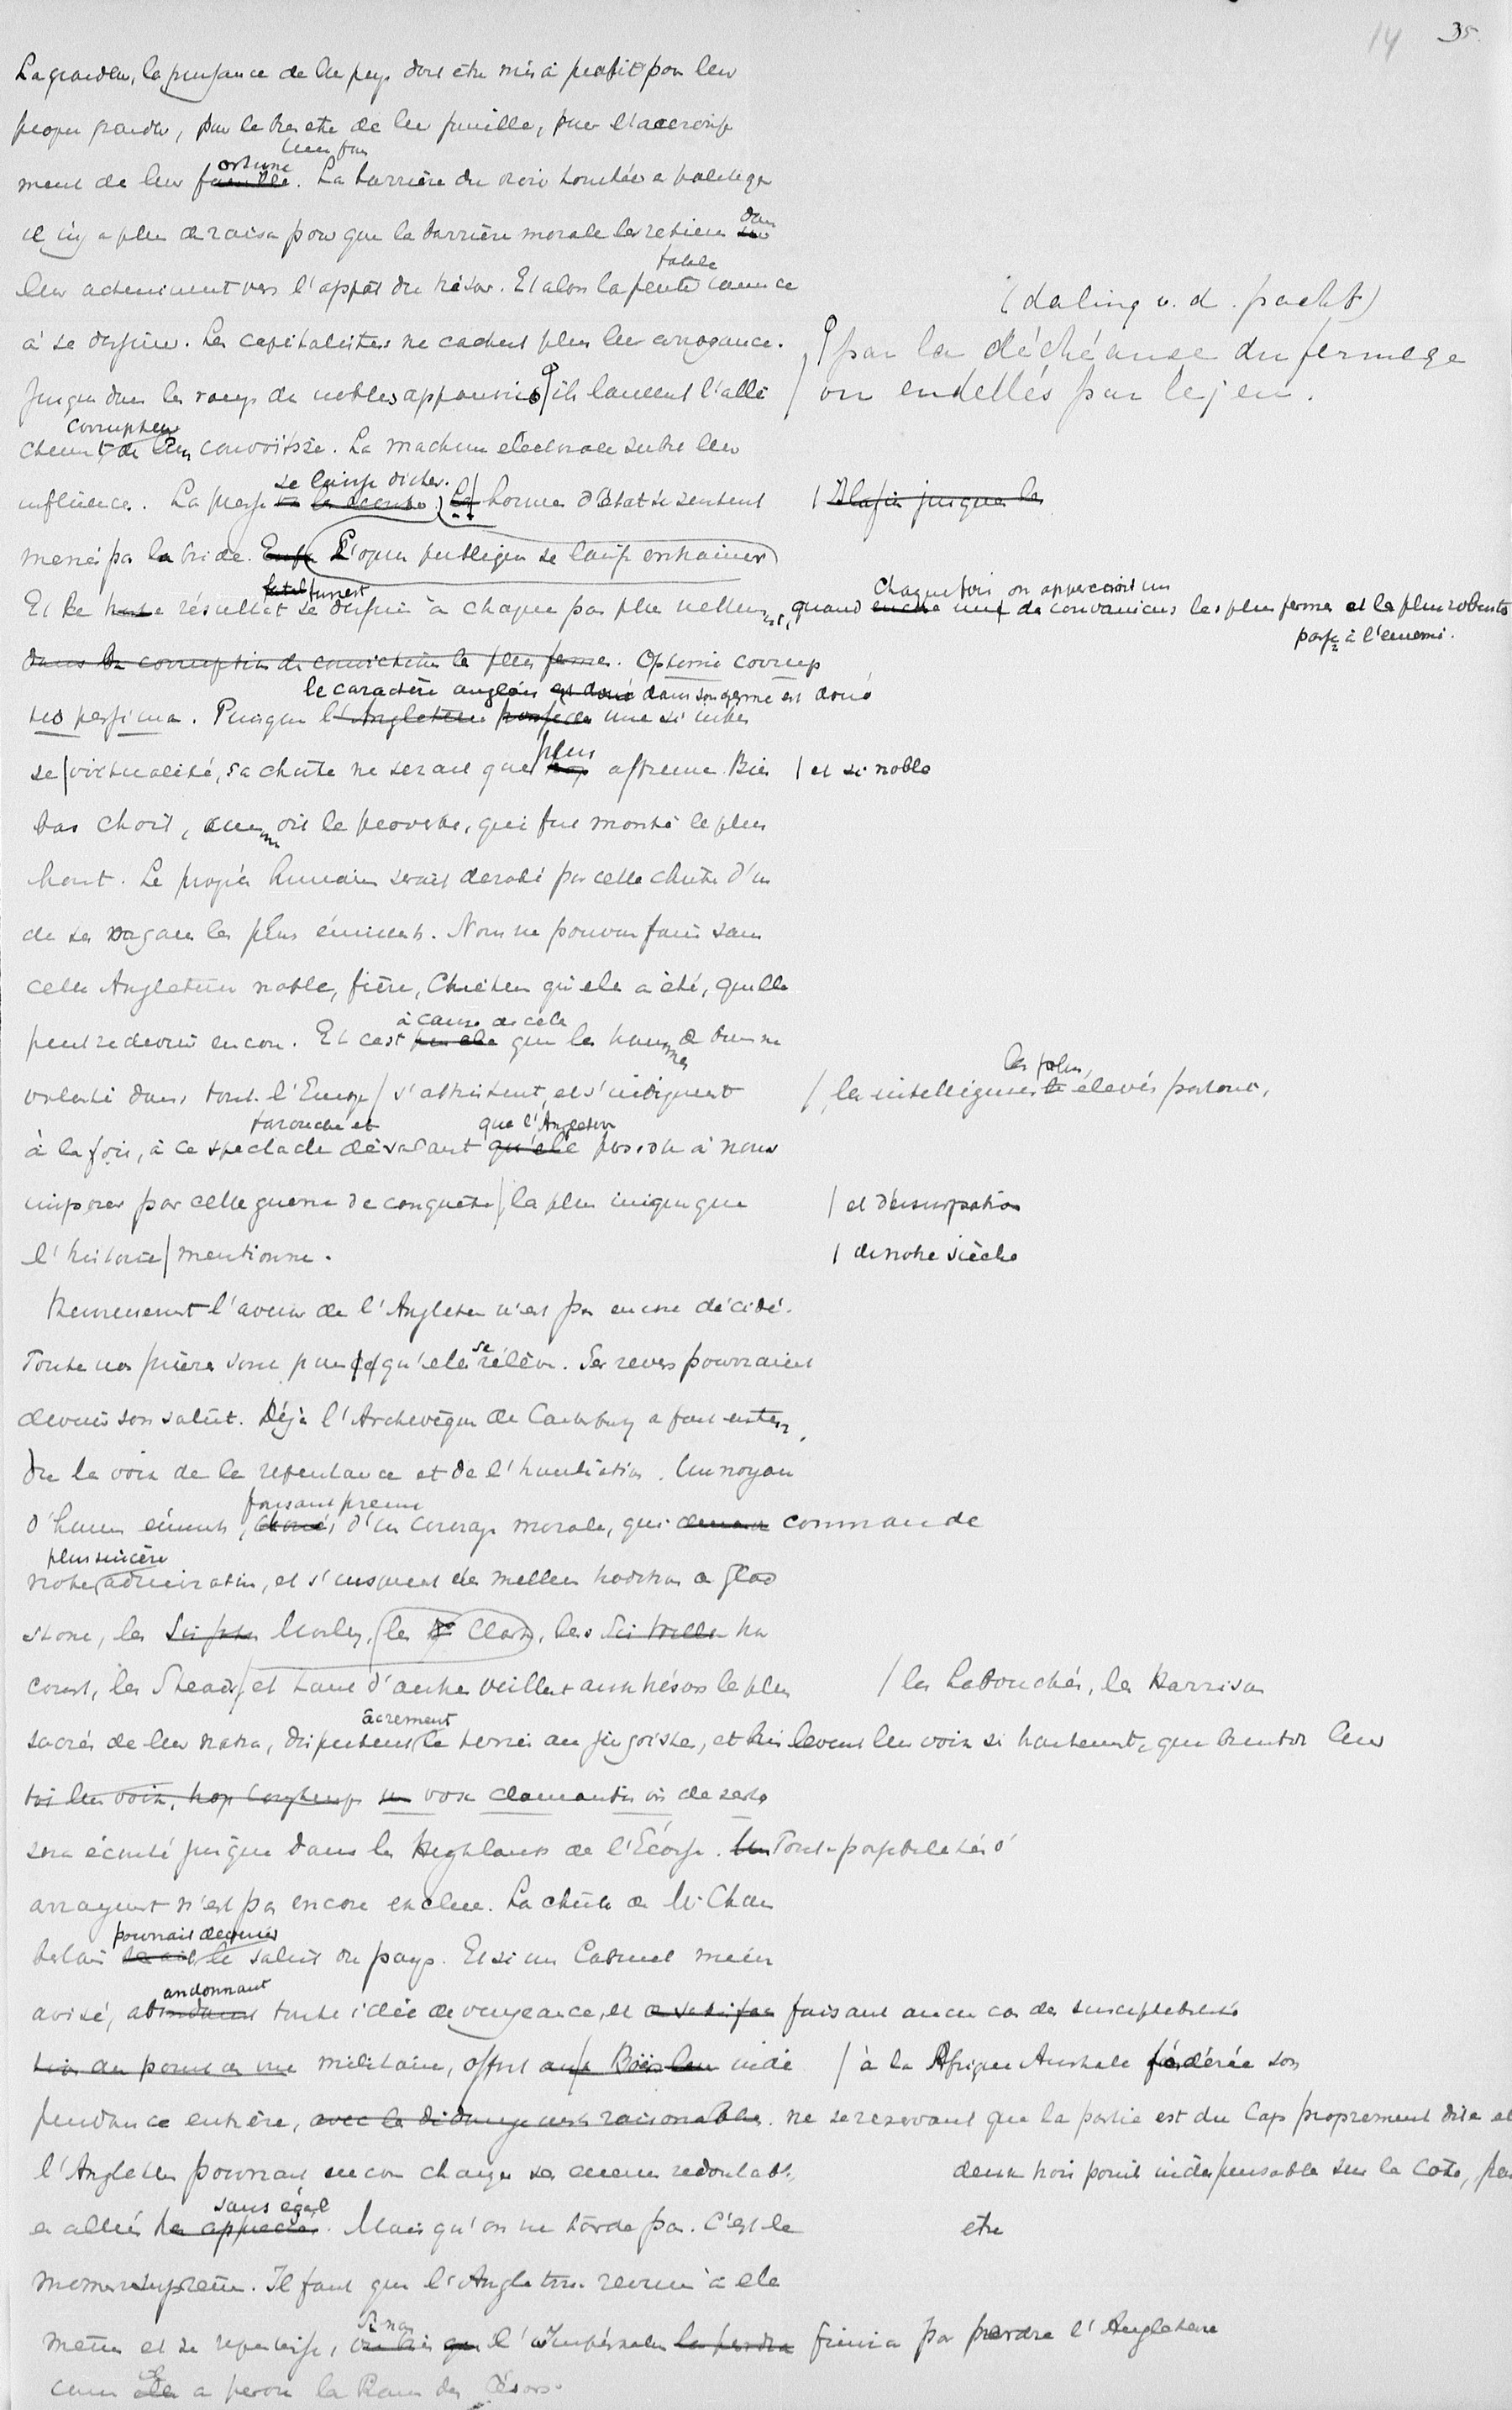 14 35.
La grandeur, la puissance de leur pays doit être mis à profit pour leur
propre grandeur, pour le bien être de leur famille, pour l'accroisse
ment de leur fortune. La barrière du noir touchée
il n'y a plus de raison pour que la barrière morale les retienne dans
leur acheminent vers l'appât du trésor. Et alors la pente fatale commence
(daling v. d. pacht)
à se dessiner. Les capitalistes ne cachent plus leur arrogance.
par la déchéance du fermage
Jusque dans les rangs de nobles appauvris ils lancent l'allè
ou endettés par le jeu.
chement corrupteur de leur convoitise. La machine electorale subit leur
influence. La presse se laisse dicter. Les hommes d'état se sentent
Il a fini jusque la
menés par la bride. L'opinion publique se laisse entrainer
Et le résultat funest se dessine à chaque pas plus nettement, quand chaque fois on appercoit un de convaincus les plus fermes et les plus robustes
passer à l'ennemi.
dans la corruption de conviction la plus ferme. Optimi corrup
le caractère anglais dans son germe est doué
tio pessima. Puisque l'Angleterre possede une si
se virtualité, sa chute ne serait que plus affreuse. Bien
et si noble
bas choit, comme dit le proverbe, qui fut monté le plus
haut. Le progrès humain serait derobé par cette chute d'un
de ses organes les plus éminents. Nous ne pouvons faire sans
cette Angleterre noble, fière, Chrétienne qu'elle a été, qu'elle
peut redevenir encore. Et c'est à cause de cela que les hommes de bonne
volonté dans toute l'Europe s'attristent, et s'indignent
les intelligences les plus élevés partout,
à la fois, à ce spectacle farouche et dévalant que l'Angleterre persiste à nous
imposer par cette guerre de conquête la plus inique que
et d'usurpation
l'histoire mentionne.
de notre siècle
Heureusement l'avenir de l'Angleterre n'est pas encore décidé.
Toute nos prières sont pour qu'elle se rélève. Ses revers pourraient
devenir son salut. Déjà l'Archevêque de Canterbury a fait enten
dre la voix de la repentance et de l'humiliation. Un noyau
d'hommes éminents, faisant preuve d'un courage morale, qui commande
notre plus sincère admiration, et s'inspirent des meilleurs traditions de Glad
stone, les Morley, les Dr Clark, les Har
court, les Stead et tant d'autres veillent aux trésors le plus
les Labouchère, les Harrison
sacrés de leur nation, disputent âcrement le terrain au jingoiste, et levent leur voix si hautement, que bientôt leur
vox clamantis in deserto
sera écouté jusque dans les Highlands de l'Écosse. Toute possibilité d'
arrangement n'est pas encore exclue. La chute de Mr Cham
berlain pourrait devenir le salut du pays. Et si un Cabinet mieux
avisé, abandonnant toute idée de vengeance, et faisant aucun cas des susceptibilités
militaire, offrit indé
à la Afrique Australe fédérée son
pendance entière, avec la dédommagement raisonnable. ne se reservant que la partie est du Cap proprement dite et
l'Angleterre pourrait encore changer ses ennemis redoutable,
deux trois points indispensable sur la côte, peut
en alliés sans égal. Mais qu'on ne tarde pas. C'est le
etre
moment suprême. Il faut que l'Angleterre revienne à elle
même et se repentisse, sinon l'Impérialisme finira par perdre l'Angleterre
comme il a perdu la Rome des Césars.